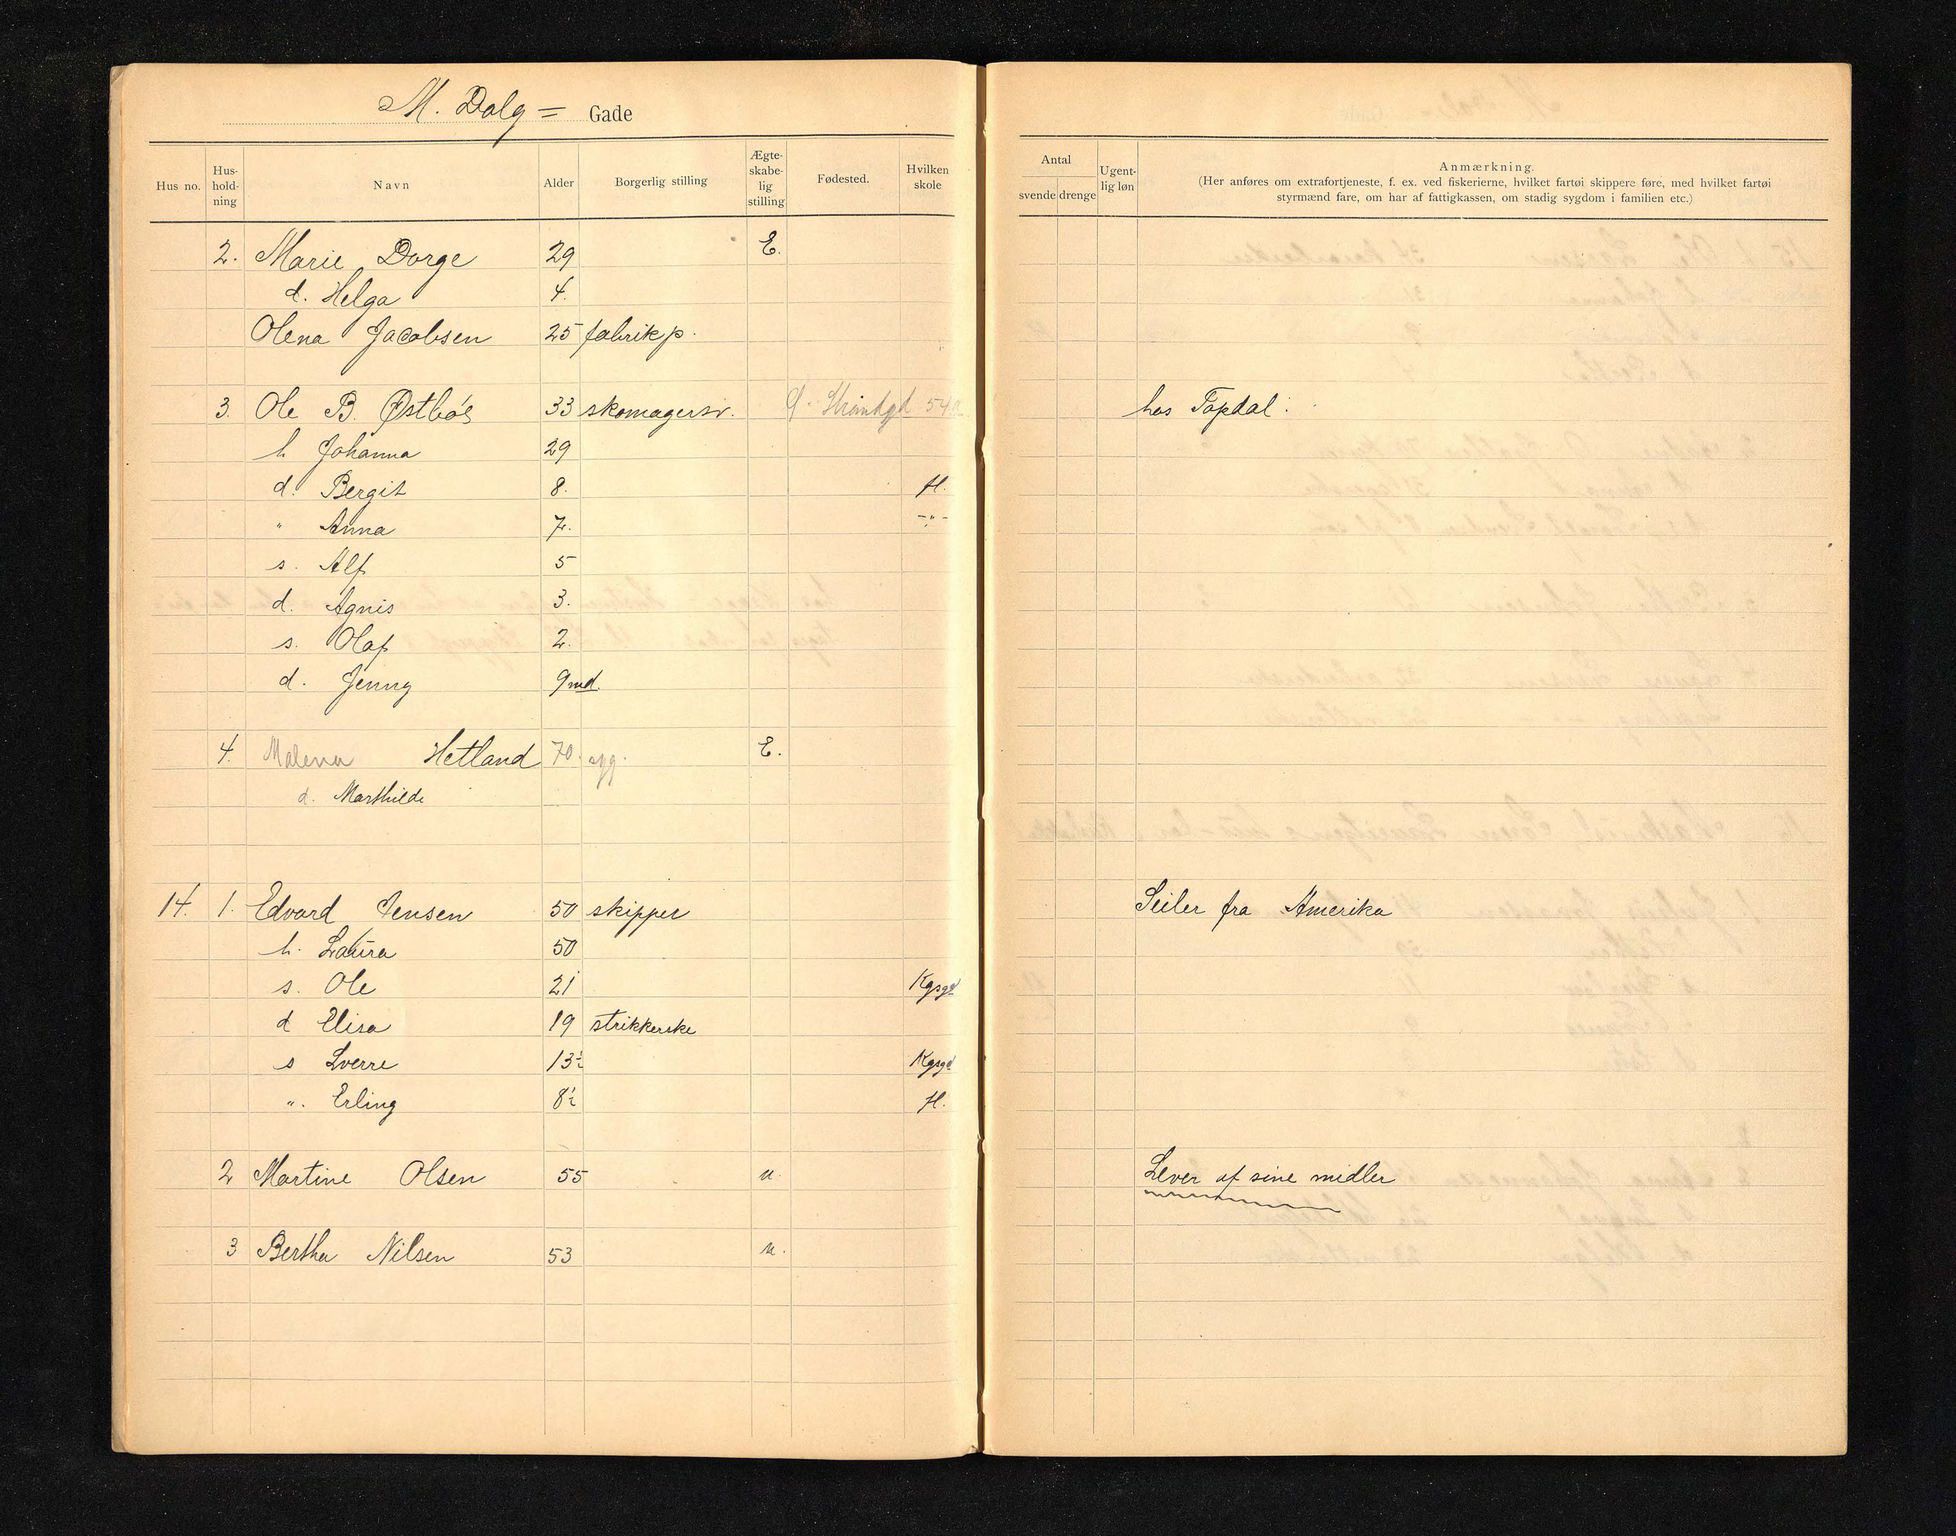 M. Dalg = Gade
Hus no.
Hus-
hold-
ning
Navn
Alder
Borgerlig stilling
Ægte-
skabe-
lig
stilling
Fødested.
Hvilken
skole
Antal
svende drenge
Ugent-
lig løn
Anmærkning.
(Her anføres om extrafortjeneste, f. ex. ved fiskerierne, hvilket fartøi skippere føre, med hvilket fartøi
styrmænd fare, om har af fattigkassen, om stadig sygdom i familien etc.)
2. Marie Dorge 29 E.
d. Helga 4.
Olena Jacobsen 25 fabrikp.
3. Ole B. Østbøe 33 skomagersv. Strandgd 54a hos Topdal.
h Johanna 29
d. Bergit 8. H.
" Anna 7. -"-
s. Alf 5
d. Agnis 3.
s. Olaf 2.
d. Jenny 9 md.
4. Malena Hetland 70. E.
d. Marthilde
14. 1. Edvard Jensen 50 skipper Seiler fra Amerika
h. Laura 50
s. Ole 21 Kgsgd
d Elisa 19 strikkerske
s Sverre 13½ Kgsgd
". Erling 8½ H.
2 Martine Olsen 55 u. Lever af sine midler
3 Bertha Nilsen 53 u.